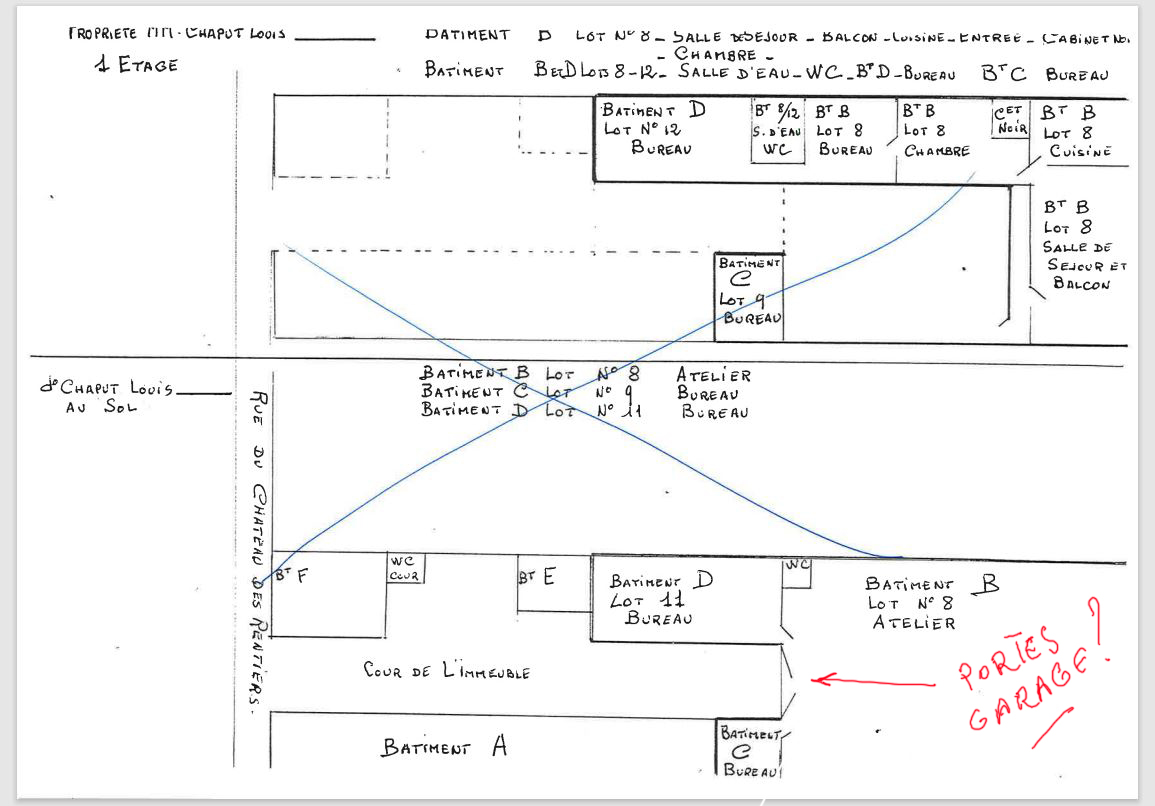 PROPRIETE MM. CHAPUT LOUIS
1 ETAGE
BATIMENT D LOT N° 8 - SALLE DE SEJOUR - BALCON - CUISINE - ENTREE - CABINET NOI
- CHAMBRE -
BATIMENT B ET D LOTS 8-12 - SALLE D'EAU - WC - BT D - BUREAU BT C BUREAU
BATIMENT D
LOT N° 12
BUREAU
BT 8/12
S. D'EAU
WC
BT B
LOT 8
BUREAU
BT B
LOT 8
CHAMBRE
CET
NOIR
BT B
LOT 8
CUISINE
BT B
LOT 8
SALLE DE
SEJOUR ET
BALCON
BATIMENT
C
LOT 9
BUREAU
d° CHAPUT LOUIS
AU SOL
BATIMENT B LOT N° 8 ATELIER
BATIMENT C LOT N° 9 BUREAU
BATIMENT D LOT N° 11 BUREAU
RUE DU CHATEAU DES RENTIERS.
BT F
WC
COUR
BT E
BATIMENT D
LOT 11
BUREAU
WC
BATIMENT B
LOT N° 8
ATELIER
COUR DE L'IMMEUBLE
PORTES
GARAGE ?
BATIMENT A
BATIMENT
C
BUREAU